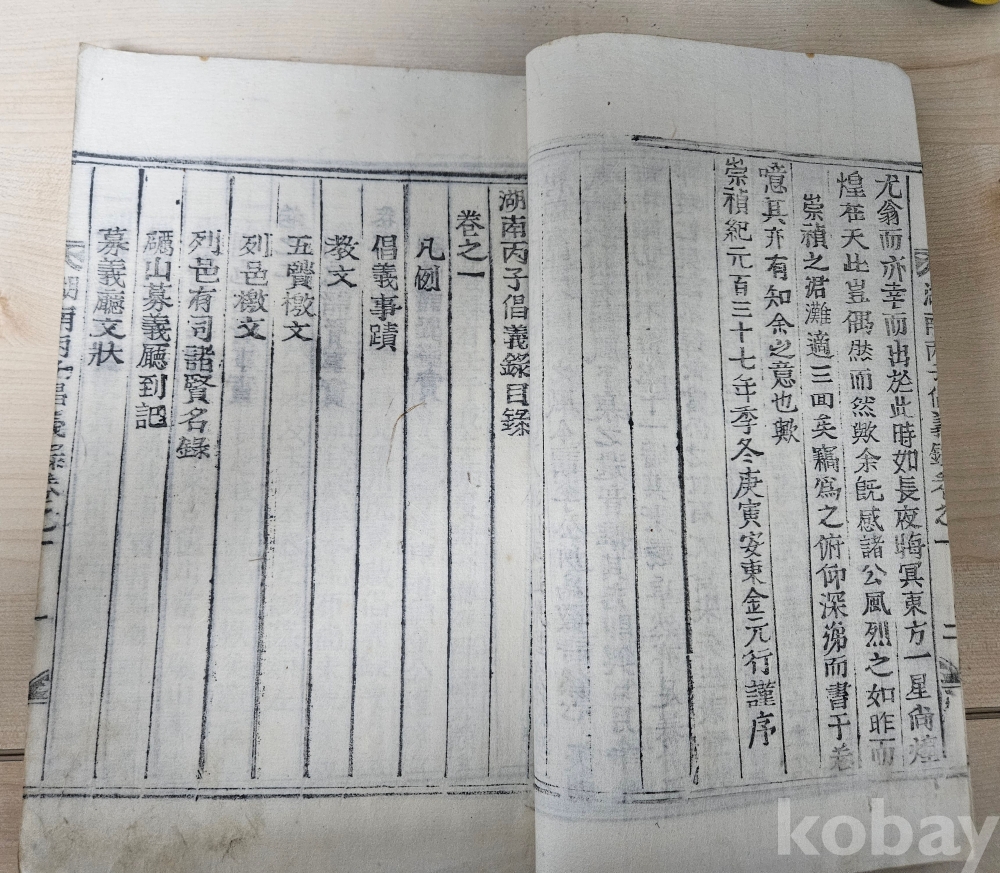 尤翁而亦幸而出於此時如長夜晦冥東方一星尙煌
煌在天此豈偶然而然歟余旣感諸公風烈之如昨而
崇禎之涒灘適三回矣竊爲之俯仰深涕而書于卷
噫其亦有知余之意也歟
崇禎紀元百三十七年季冬庚寅安東金元行謹序
湖南丙子倡義錄目錄
卷之一
凡例
倡義事蹟
敎文
五賢檄文
列邑檄文
列邑有司諸賢名錄
礪山募義廳到記
募義廳文狀
湖南丙子倡義錄卷之一
二
湖南丙子倡義錄卷之一
一
kobay